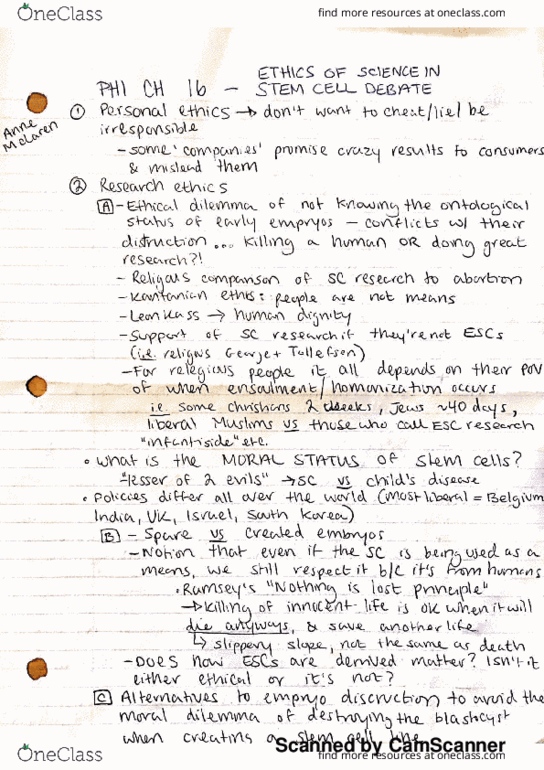 OneClass
find more resources at oneclass.com
ETHICS OF SCIENCE IN
PHI CH 16 - STEM CELL DEBATE
Anne
McLaren
① Personal ethics → don't want to cheat/lie/be
irresponsible
- some 'companies' promise crazy results to consumers
& mislead them
② Research ethics
A - Ethical dilemma of not knowing the ontological
status of early empryos - conflicts w/ their
distruction ... killing a human OR doing great
research?!
- Religous comparison of SC research to abortion
- Kantanian ethis: people are not means
- Leon Kass → human dignity
- Support of SC research if they're not ESCs
(i.e. religus George + Tollefson)
- For relegious people it all depends on their POV
of when ensoulment/homonization occurs
i.e. some christians 2 weeks, Jews ~40 days,
liberal Muslims vs those who call ESC research
"infantiside" etc.
• What is the MORAL STATUS of stem cells?
"lesser of 2 evils" → SC vs child's disease
• Policies differ all over the world (most liberal = Belgium
India, UK, Israel, South Korea)
B - Spare vs created embryos
- Notion that even if the SC is being used as a
means, we still respect it b/c it's from humans
• Ramsey's "Nothing is lost principle"
→ killing of innocent life is ok when it will
die anyways, & save another life
↳ slippery slope, not the same as death
- Does how ESCs are derived matter? Isn't it
either ethical or it's not?
C Alternatives to empryo discruction to avoid the
moral dilemma of destroying the blashcyst
when creating a stem cell line
Scanned by CamScanner
OneClass
find more resources at oneclass.com